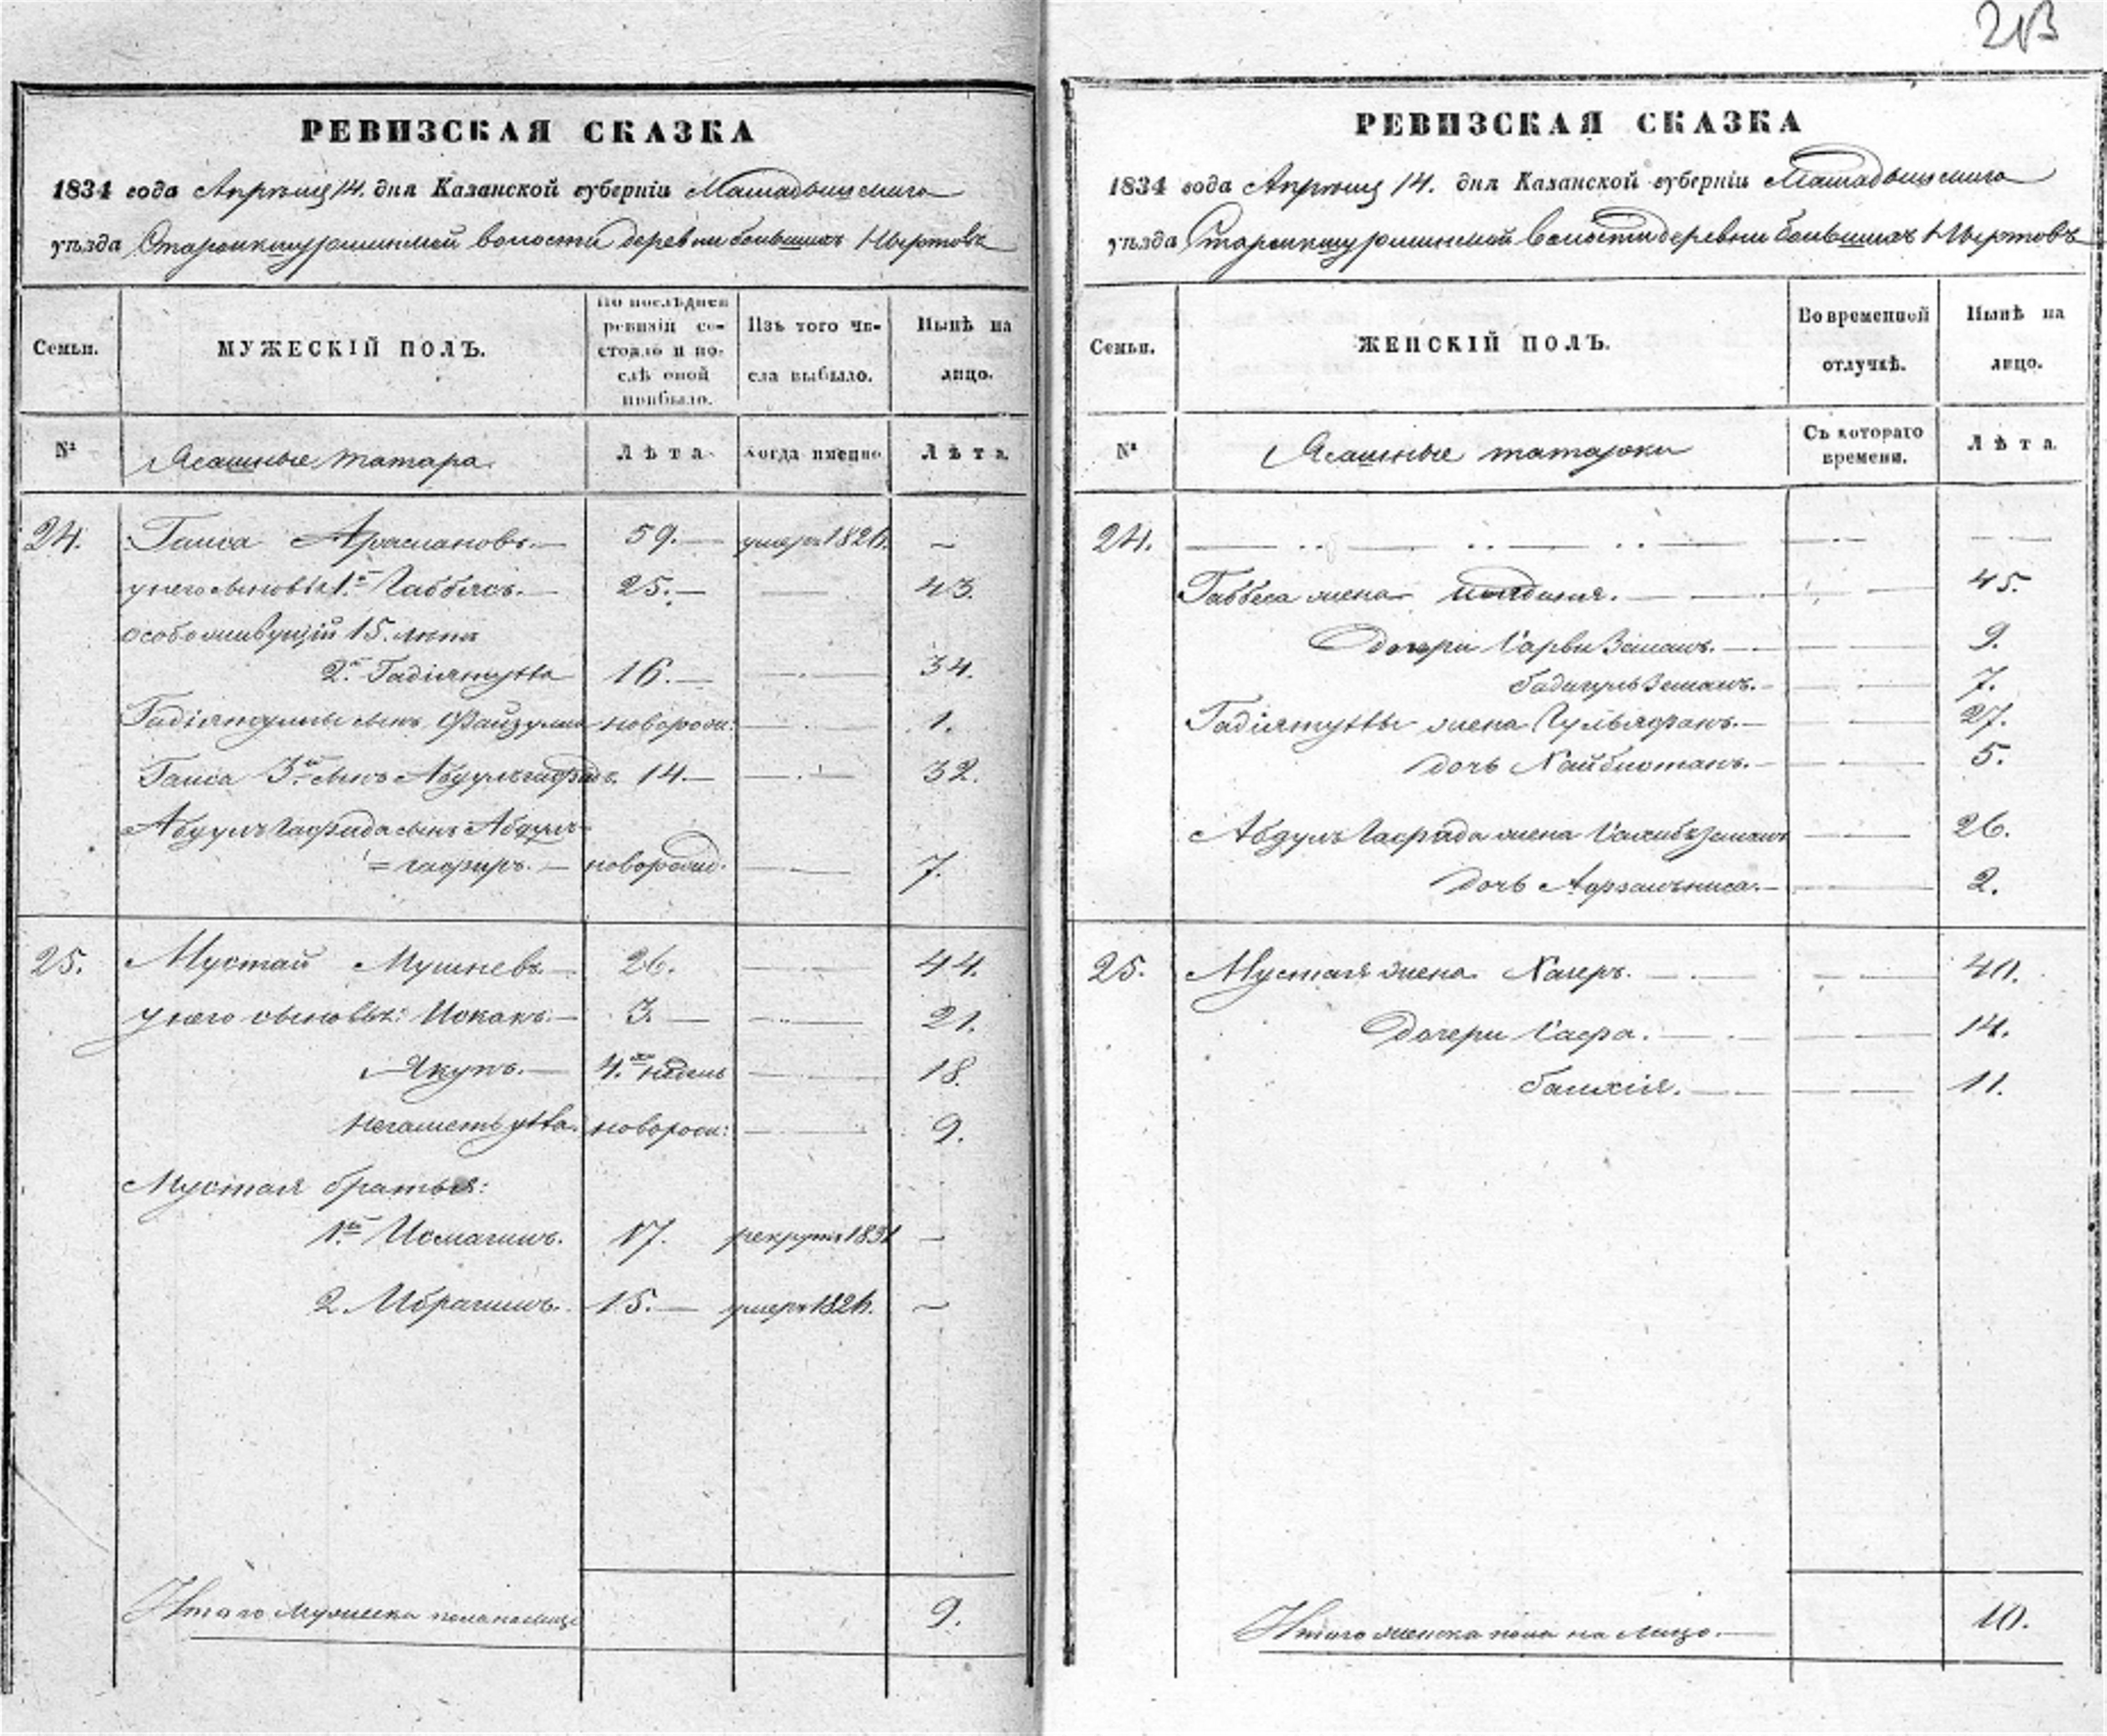 213
РЕВИЗСКАЯ СКАЗКА
1834 года Апрѣля 14. дня Казанской губерніи Мамадышскаго
уѣзда Староикшурминской волости деревни большихъ Ныртовъ
Семьи.
МУЖЕСКІЙ ПОЛЪ.
По послѣдней
ревизіи со-
стояло и по-
слѣ оной
прибыло.
Изъ того чи-
сла выбыло.
Нынѣ на
лицо.
№
Ясашные татара.
Лѣта.
Когда имянно
Лѣта.
24. Гаиса Арасланова.— 59.— умеръ 1826. —
у него сыновья 1.й Габбясъ.— 25.— — 43.
особоживущій 15. лѣтъ
2.й Гадіятулла 16.— — 34.
Гадіятуллы сынъ Файзулла новорож: — 1.
Гаиса 3.й сынъ Абдулгафаръ 14.— — 32.
Абдулъ сынъ Абдулъ-
=гафиръ.— новорожд. — 7.
25. Мустай Мушневъ— 26. — 44.
у него сыновья: Исхакъ.— 3.— — 21.
Якупъ.— 4.хъ недель — 18.
Негаметулла. новорож: — 9.
Мустая братья:
1.й Исмагилъ. 17. рекрутъ 1831 —
2. Ибрагимъ. 15.— умеръ 1826. —
Итого мужеска пола на лицо 9.
РЕВИЗСКАЯ СКАЗКА
1834 года Апрѣля 14. дня Казанской губерніи Мамадышскаго
уѣзда Староикшурминской волости деревни большихъ Ныртовъ
Семьи.
ЖЕНСКІЙ ПОЛЪ.
Во временной
отлучкѣ.
Нынѣ на
лицо.
№
Ясашные татарки
Съ котораго
времени.
Лѣта.
24.
Габбеса жена — 45.
дочери Сарви Земалъ.— — 9.
Бадигулъ Земалъ.— — 7.
Гадіятуллы жена — 27.
дочь — 5.
жена — 26.
дочь — 2.
25. Мустая жена — 40.
дочери Сафа.— — 14.
Балхія.— — 11.
Итого женска пола на лицо.— 10.